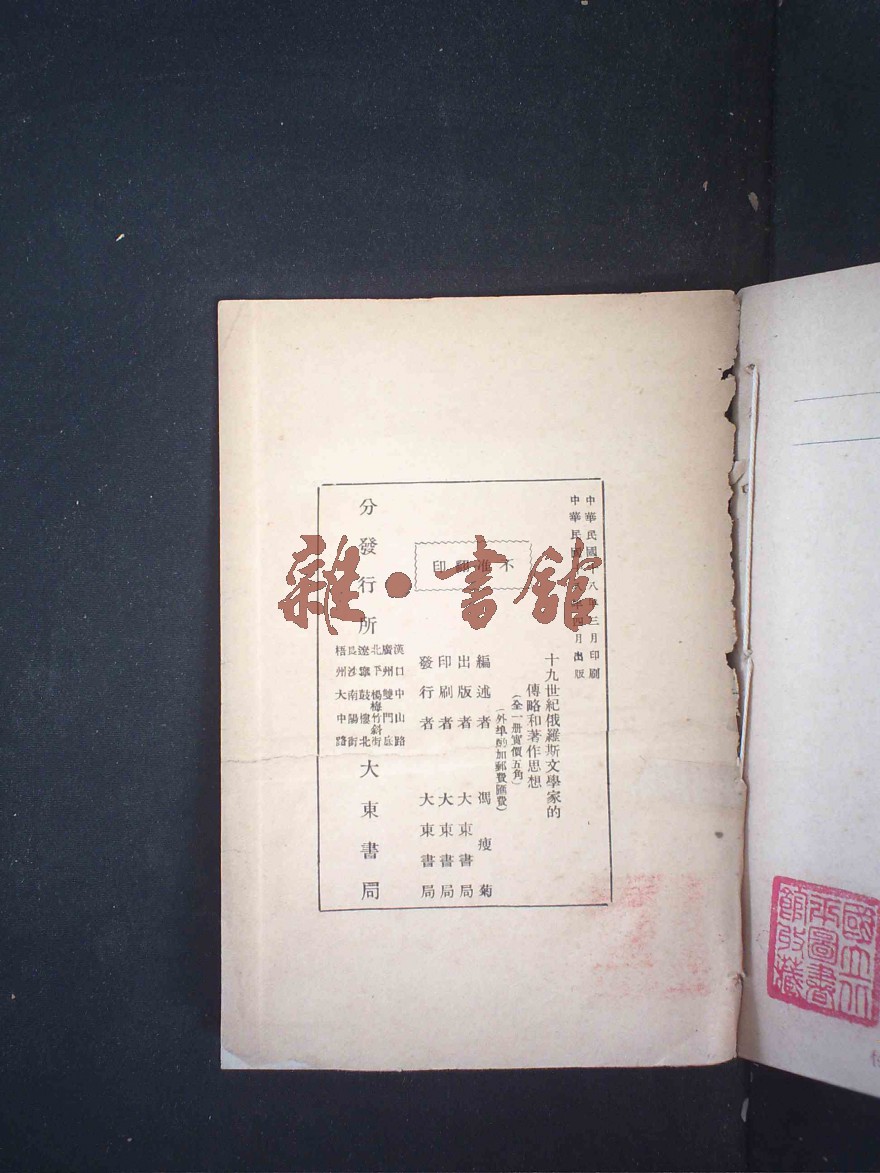 中華民國十八年三月印刷
中華民國十八年四月出版
十九世紀俄羅斯文學家的
傳略和著作思想
(全一册實價五角)
(外埠酌加郵費匯費)
編述者 馮瘦菊
出版者 大東書局
印刷者 大東書局
發行者 大東書局
不准翻印
分發行所 大東書局
漢口 中山路
廣州 雙門底
北平 楊梅竹斜街
遼寧 鼓樓北
長沙 南陽街
梧州 大中路
雜·書館
國立北平圖書館收藏